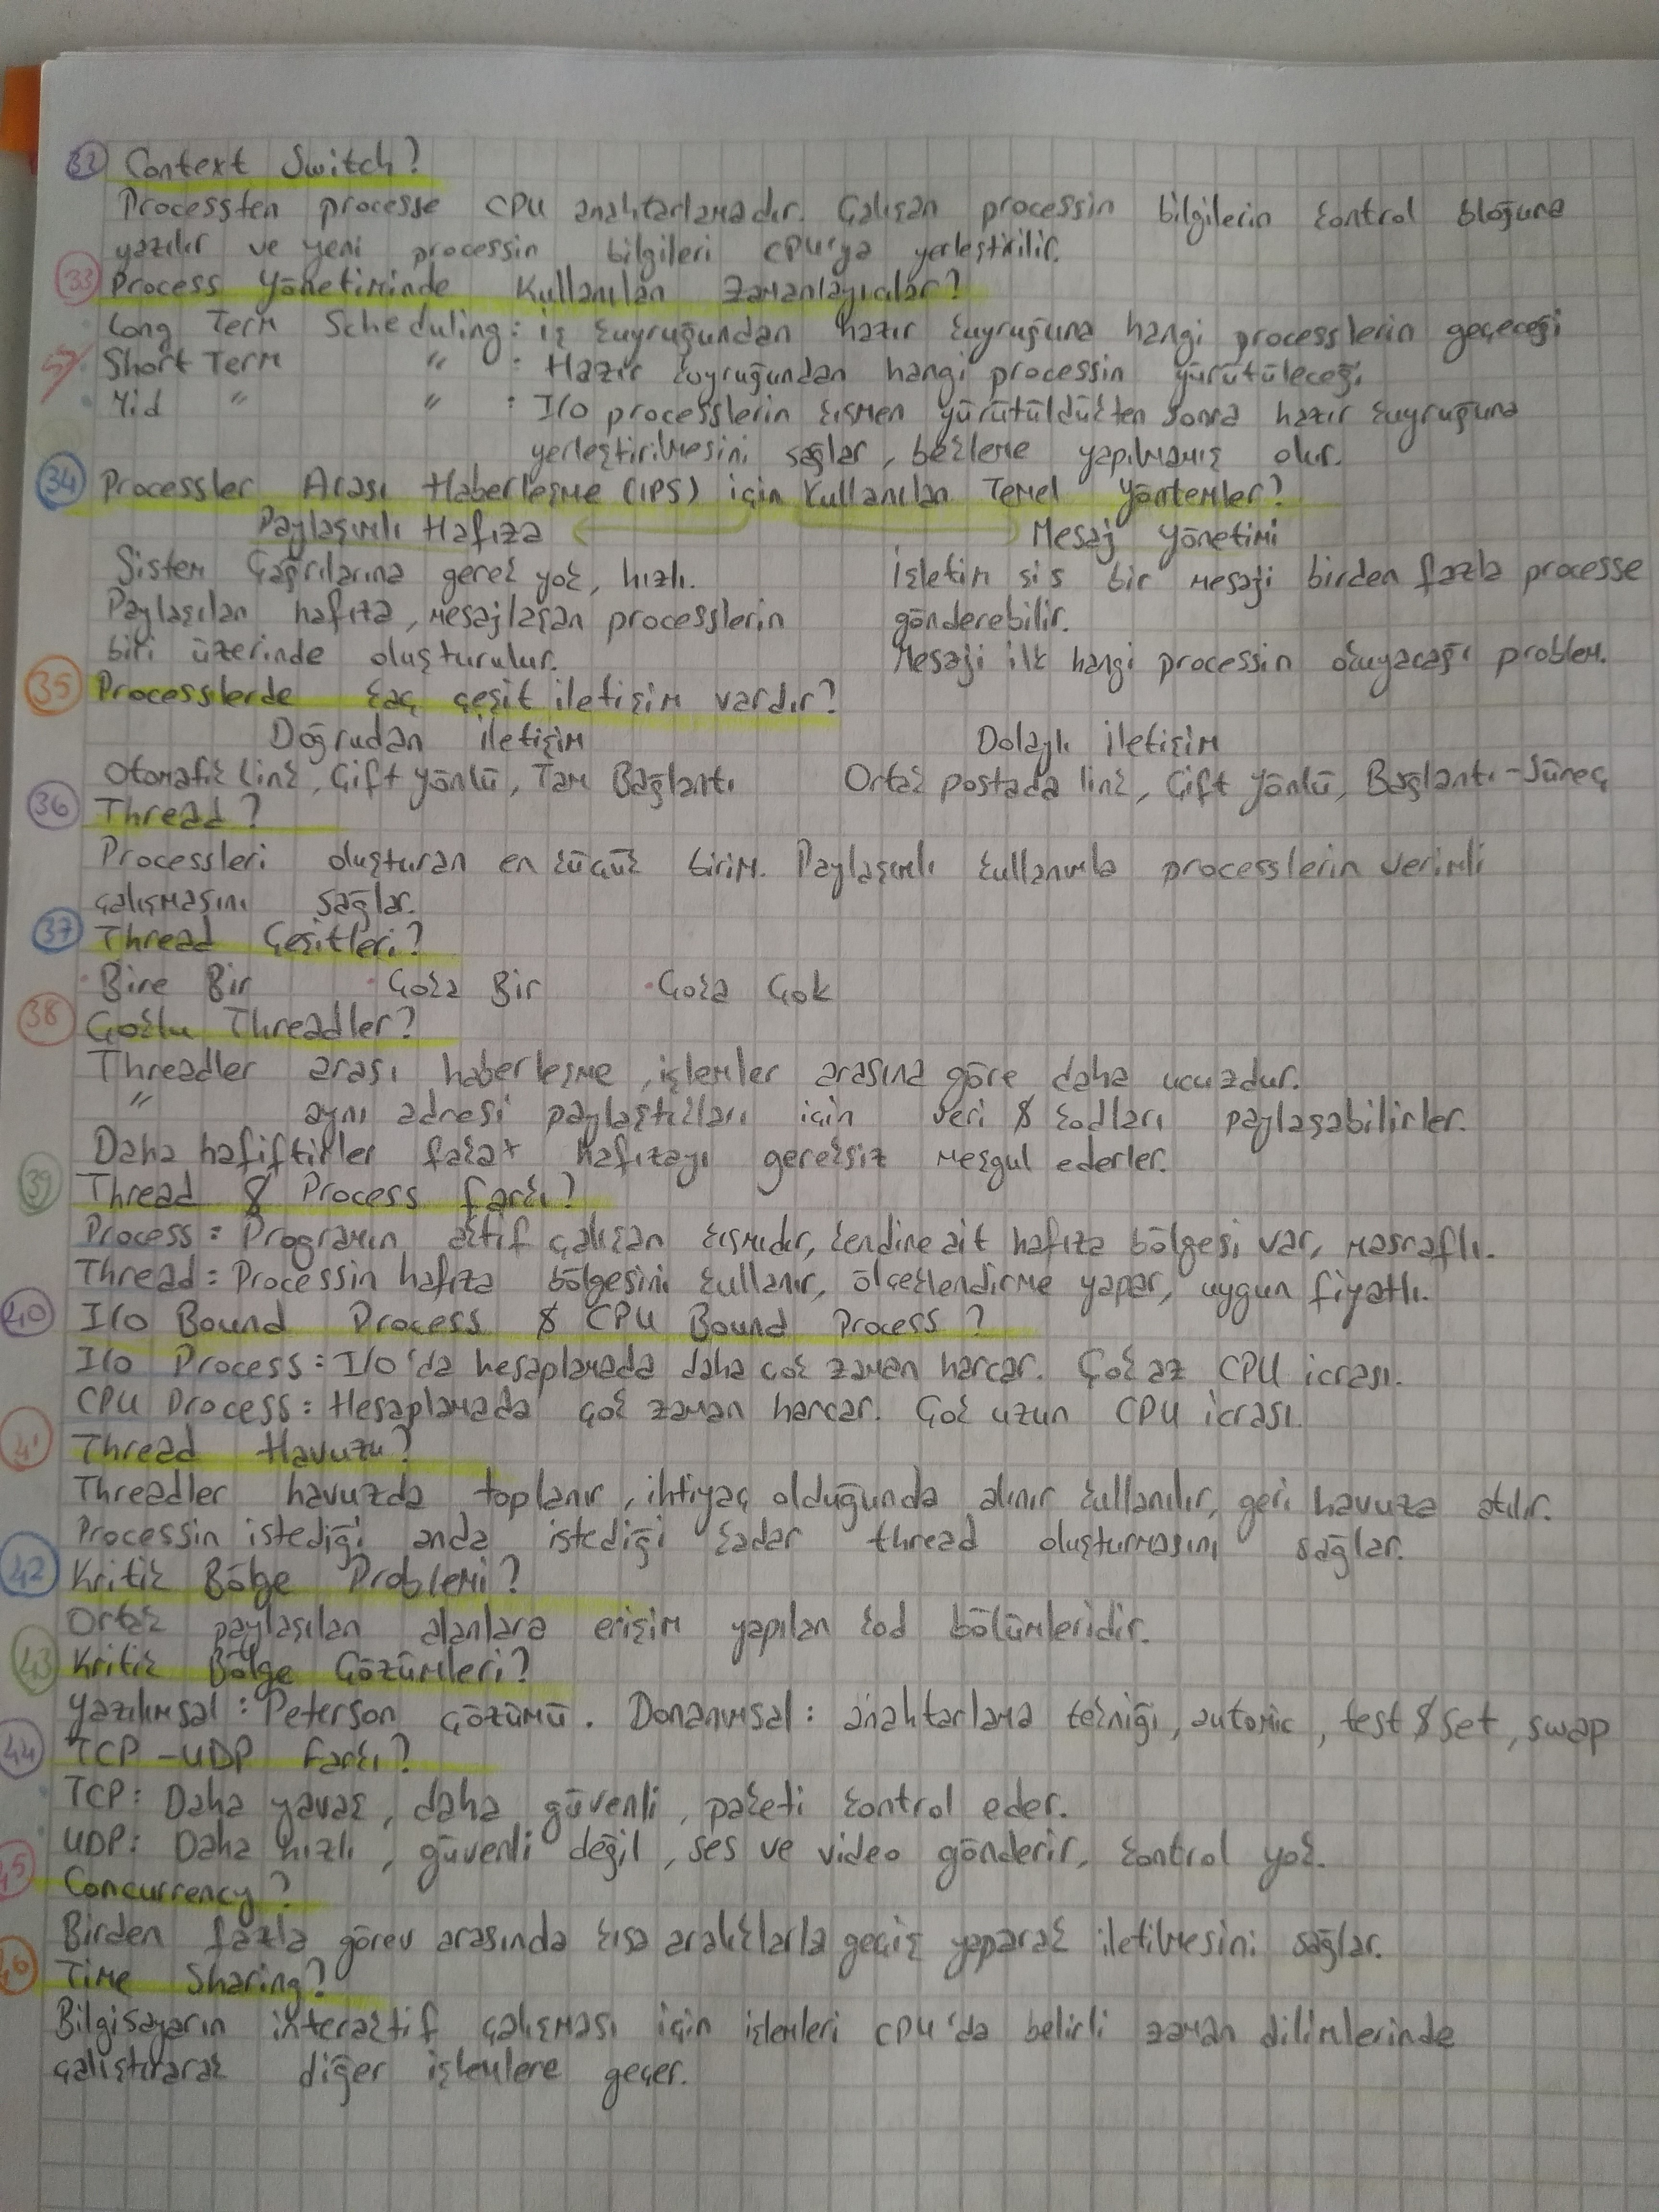 32 Context Switch?
Processten processe CPU anahtarlamadır. Çalışan processin bilgilerin kontrol bloğuna
yazılır ve yeni processin bilgileri CPU'ya yerleştirilir.
33 Process Yönetiminde Kullanılan Zamanlayıcılar?
Long Term Scheduling: iş kuyruğundan hazır kuyruğuna hangi processlerin geçeceği
Short Term " : Hazır kuyruğundan hangi processin yürütüleceği
Mid " " : I/O processlerin kısmen yürütüldükten sonra hazır kuyruğuna
yerleştirilmesini sağlar, bekleme yapılmamış olur.
34 Processler Arası Haberleşme (IPS) için Kullanılan Temel Yöntemler?
Paylaşımlı Hafıza Mesaj Yönetimi
Sistem Çağrılarına gerek yok, hızlı. İşletim sis bir mesajı birden fazla processe
Paylaşılan hafıza, mesajlaşan processlerin gönderebilir.
biri üzerinde oluşturulur. Mesajı ilk hangi processin okuyacağı problem.
35 Processlerde kaç çeşit iletişim vardır?
Doğrudan İletişim Dolaylı İletişim
Otomatik link, Çift Yönlü, Tam Bağlantı Ortak postada link, Çift Yönlü, Bağlantı-Süreç
36 Thread?
Processleri oluşturan en küçük birim. Paylaşımlı kullanımla processlerin verimli
çalışmasını sağlar.
37 Thread Çeşitleri?
Bire Bir Çoka Bir Çoka Çok
38 Çoklu Threadler?
Threadler arası haberleşme, işlemler arasına göre daha ucuzdur.
" aynı adresi paylaştıkları için veri & kodları paylaşabilirler.
Daha hafiftirler fakat hafızayı gereksiz meşgul ederler.
39 Thread & Process Farkı?
Process: Programın aktif çalışan kısmıdır, kendine ait hafıza bölgesi var, masraflı.
Thread: Processin hafıza bölgesini kullanır, ölçeklendirme yapar, uygun fiyatlı.
40 I/O Bound Process & CPU Bound Process?
I/O Process: I/O'da hesaplamada daha çok zaman harcar. Çok az CPU icrası.
CPU Process: Hesaplamada çok zaman harcar. Çok uzun CPU icrası.
41 Thread Havuzu?
Threadler havuzda toplanır, ihtiyaç olduğunda alınır kullanılır, geri havuza atılır.
Processin istediği anda istediği kadar thread oluşturmasını sağlar.
42 Kritik Bölge Problemi?
Ortak paylaşılan alanlara erişim yapılan kod bölümleridir.
43 Kritik Bölge Çözümleri?
Yazılımsal: Peterson çözümü. Donanımsal: anahtarlama tekniği, automic, test & set, swap
44 TCP-UDP Farkı?
TCP: Daha yavaş, daha güvenli, paketi kontrol eder.
UDP: Daha hızlı, güvenli değil, ses ve video gönderir, kontrol yok.
45 Concurrency?
Birden fazla görev arasında kısa aralıklarla geçiş yaparak iletilmesini sağlar.
46 Time Sharing?
Bilgisayarın interaktif çalışması için işlemleri CPU'da belirli zaman dilimlerinde
çalıştırarak diğer işlemlere geçer.